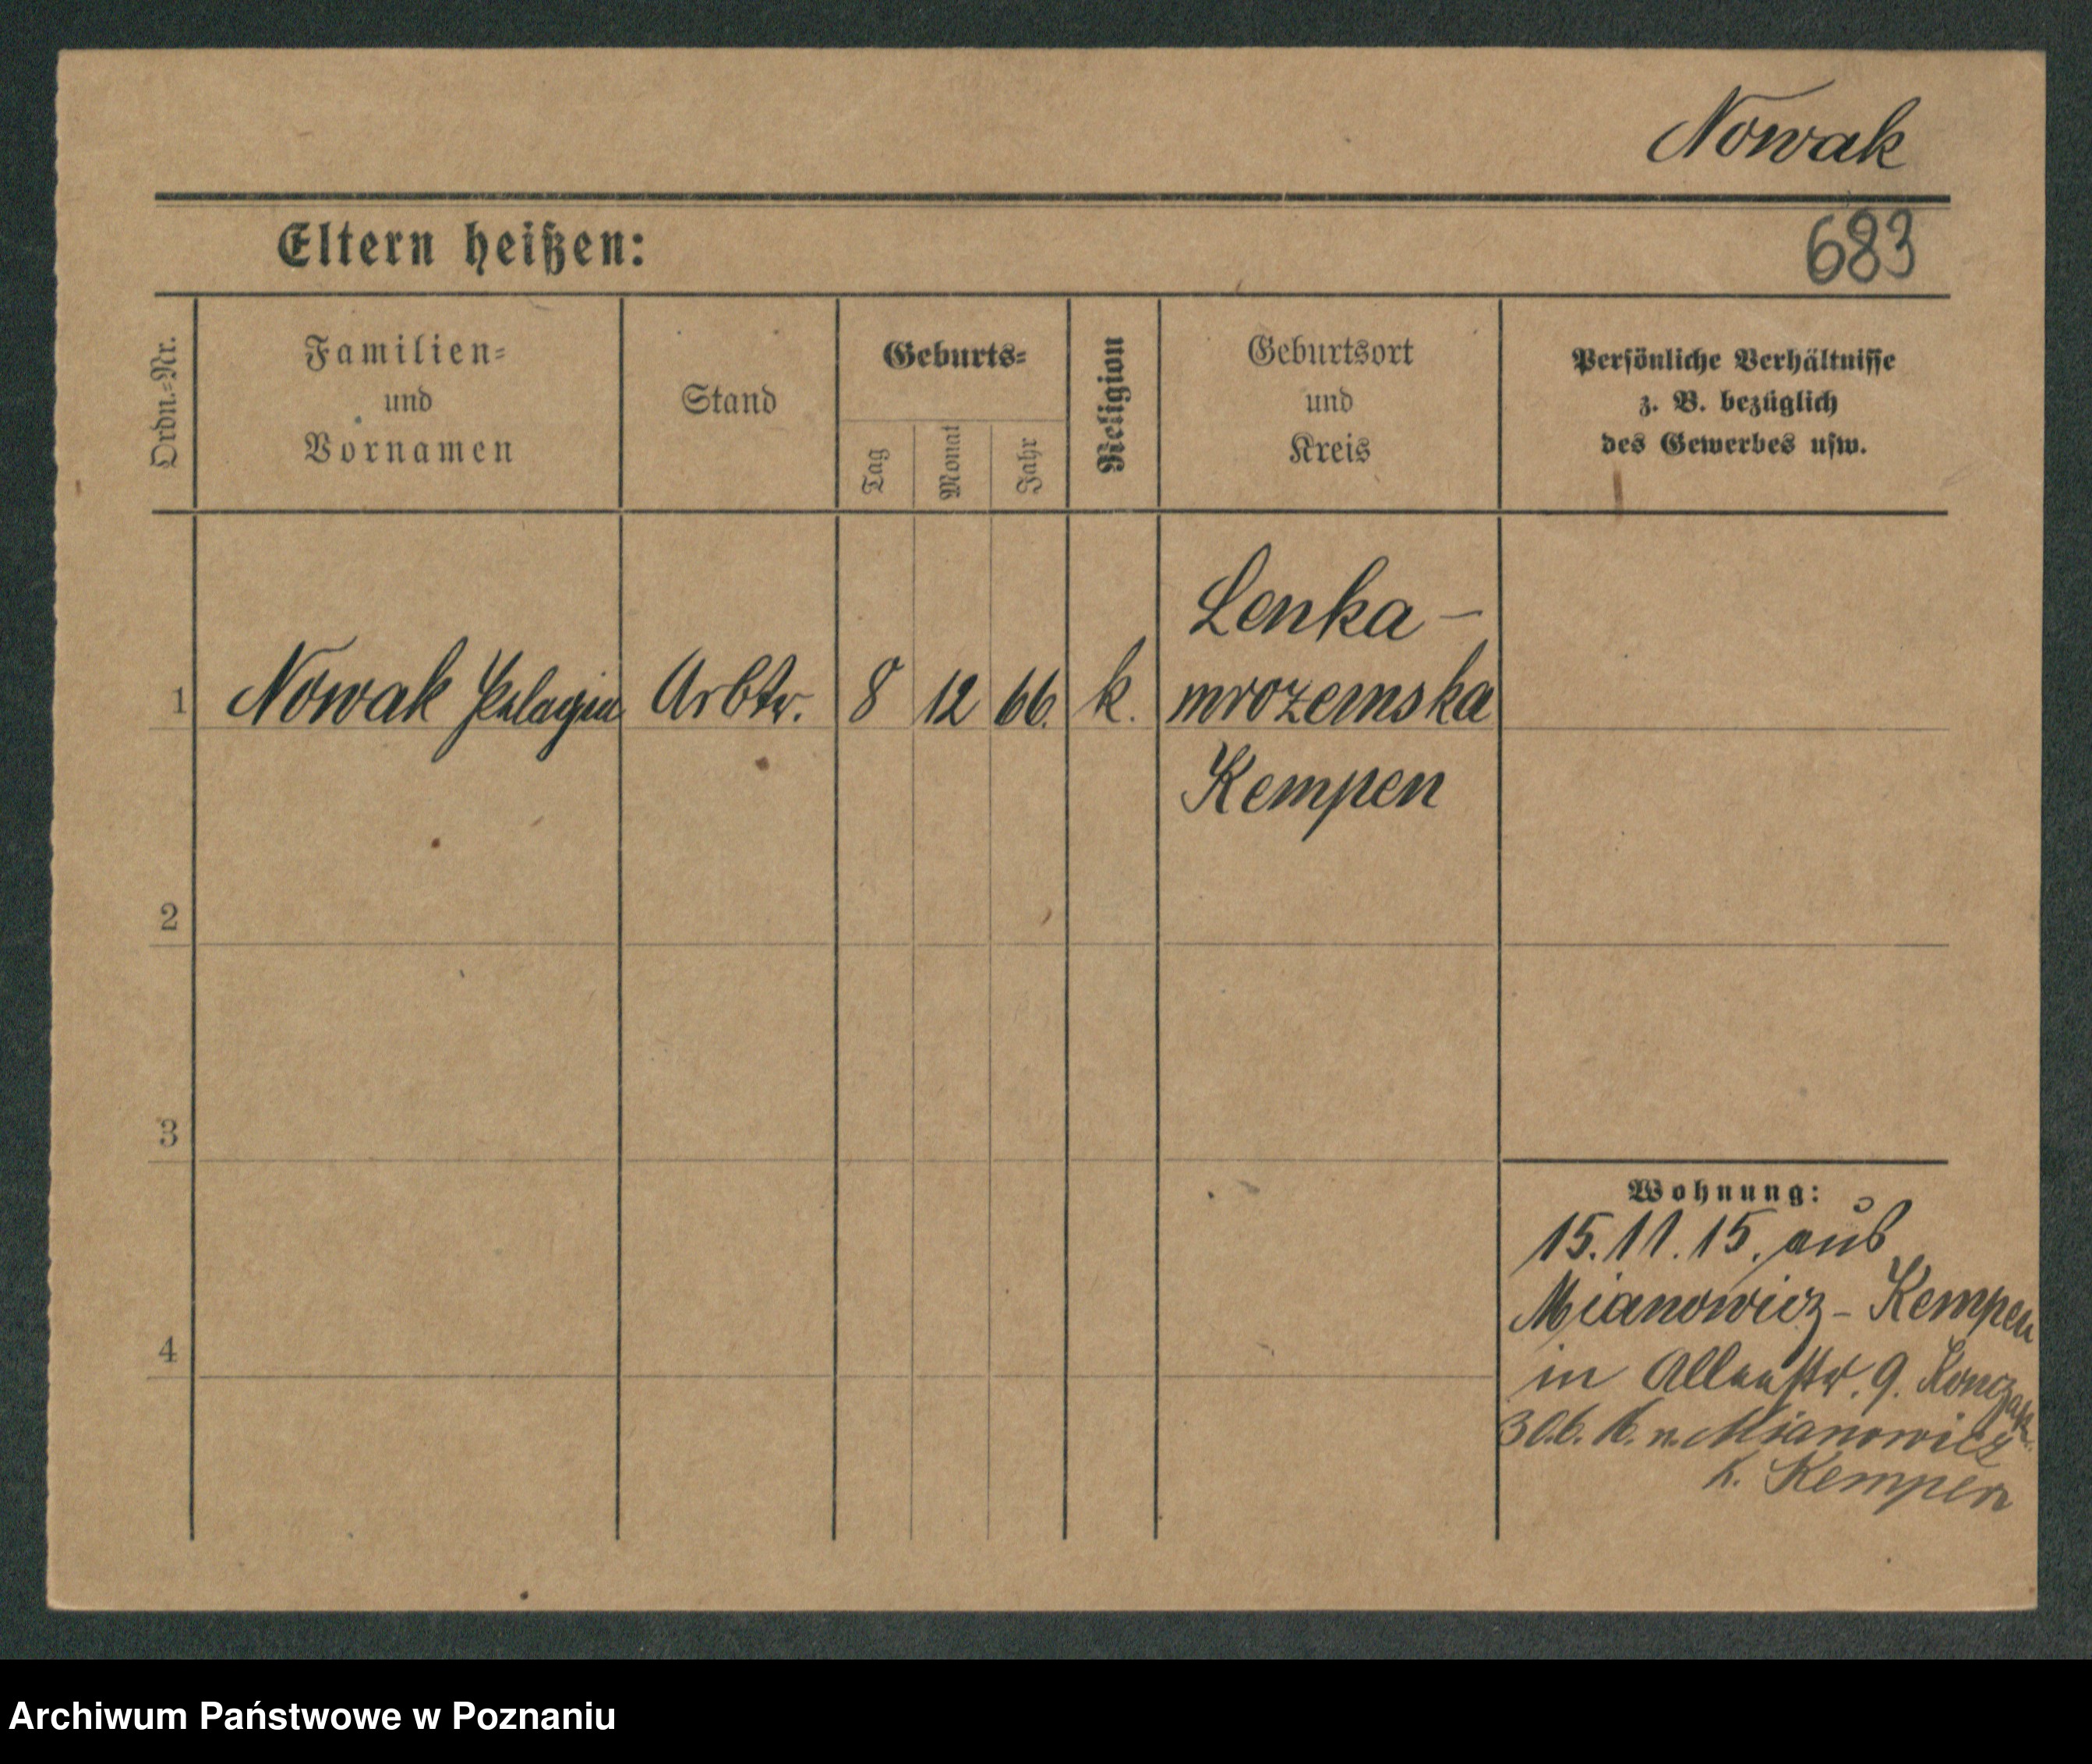 Nowak
Eltern heißen:
683
Ordn.=Nr.
Familien=
und
Vornamen
Stand
Geburts=
Tag
Monat
Jahr
Religion
Geburtsort
und
Kreis
Persönliche Verhältnisse
z. B. bezüglich
des Gewerbes usw.
Lenka-
1 Nowak Pelagia Arbtr. 8 12 66. k. mrozemska
Kempen
2
3
4
Wohnung:
15.11.15. aus
Mianowicz - Kempen
in Allee str. 9. Konczak
30.6.16. n. Mianowicz
K. Kempen
Archiwum Państwowe w Poznaniu